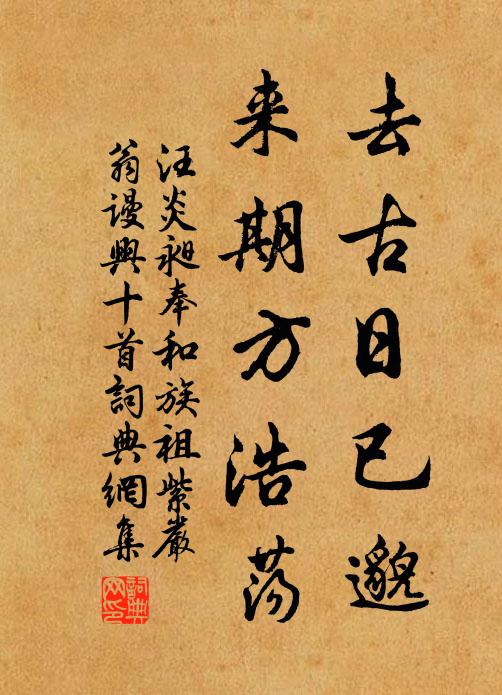 去古日已邈
来期方浩荡
汪炎昶奉和族祖紫嚴
翁谩興十首詞典網集
詞典網印